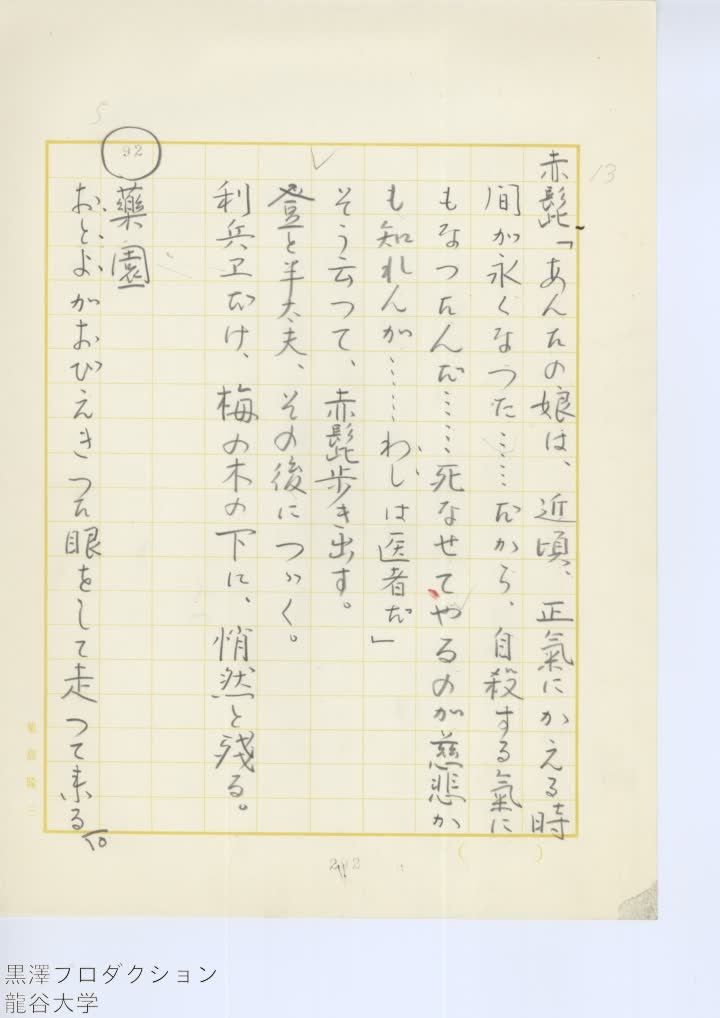 赤髭「あんたの娘は、近頃、正氣にかえる時
間が永くなつた……だから、自殺する氣に
もなつたんだ……死なせてやるのが慈悲か
も知れんが……わしは医者だ」
そう云つて、赤髭歩き出す。
登と半太夫、その後につゞく。
利兵卫だけ、梅の木の下に、悄然と殘る。
92
藥園
おとよがおびえきつた眼をして走つて来る。
13
5
202
黒澤プロダクション
龍谷大学